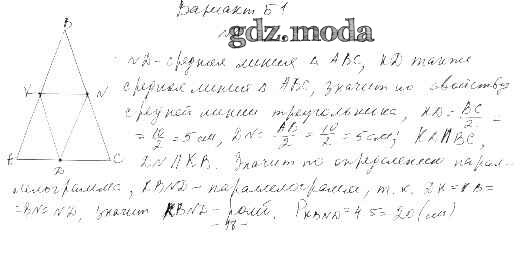 Вариант Б1
gdz.moda
B
ND - средная линия Δ ABC, KD также
K N средная линия Δ ABC, значит по свойству
средней линии треугольника, KD = BC/2 =
= 10/2 = 5 см, DN = AB/2 = 10/2 = 5 см; KD || BC,
D C DN || KB. Значит по определению парал-
лелограмма, KBND - параллелограмм, т.к. DK = KB =
= BN = ND, значит KBND - ромб. P KBND = 4·5 = 20 (см)